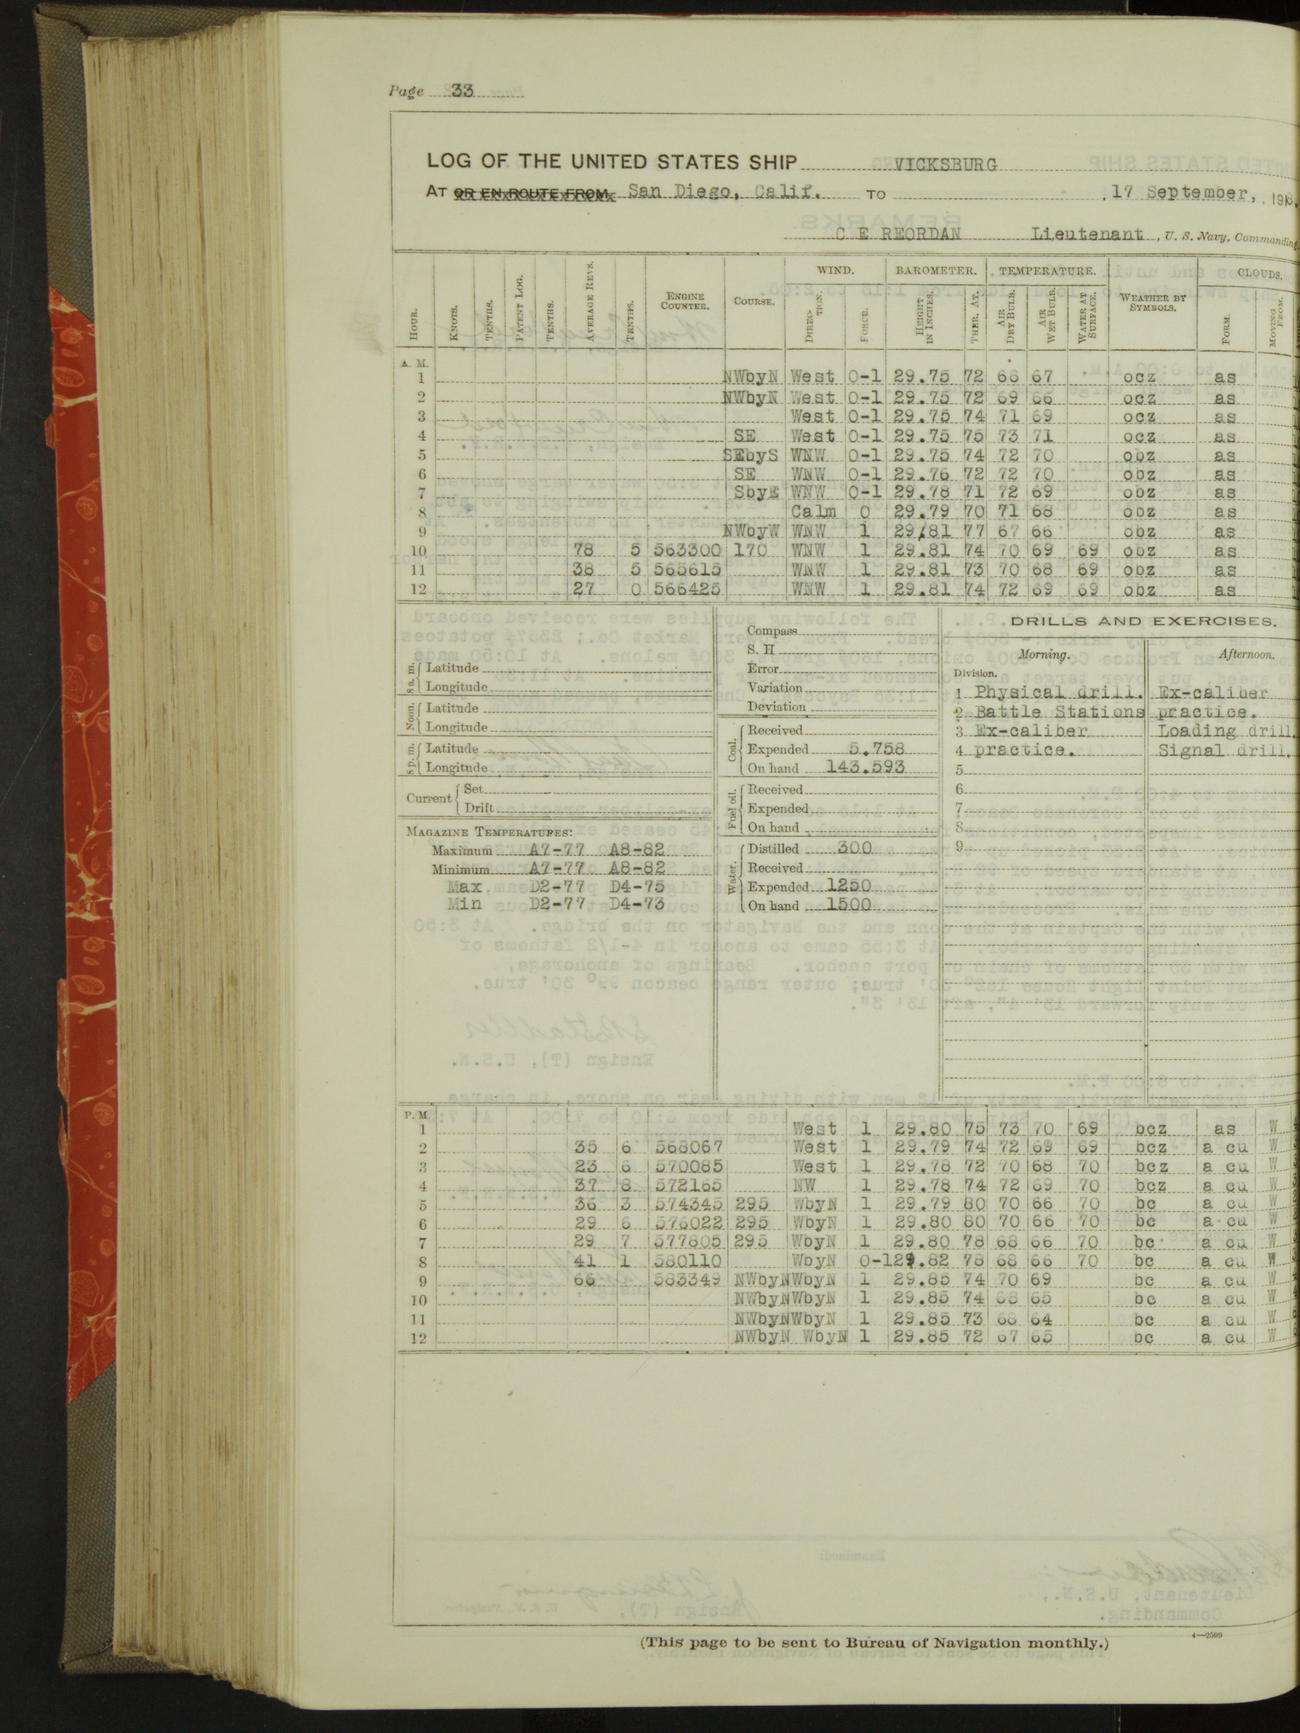 Page 33
LOG OF THE UNITED STATES SHIP VICKSBURG
AT OR EN ROUTE FROM San Diego, Calif. TO , 17 September, , 191
C E REORDAN Lieutenant , U. S. Navy, Commanding
HOUR. KNOTS. TENTHS. PATENT LOG. TENTHS. AVERAGE REVS. TENTHS. ENGINE COUNTER. COURSE. WIND. DIREC-TION. FORCE. BAROMETER. HEIGHT IN INCHES. THER. AT. TEMPERATURE. AIR DRY BULB. AIR WET BULB. WATER AT SURFACE. WEATHER BY SYMBOLS. CLOUDS. FORM. MOVING FROM.
A. M.
1 NWbyN West 0-1 29.75 72 68 67 ocz as
2 NWbyN West 0-1 29.75 72 69 66 ocz as
3 West 0-1 29.75 74 71 69 ocz as
4 SE West 0-1 29.75 75 73 71 ocz as
5 SEbyS WNW 0-1 29.75 74 72 70 obz as
6 SE WNW 0-1 29.76 72 72 70 obz as
7 SbyE WNW 0-1 29.78 71 72 69 obz as
8 Calm 0 29.79 70 71 68 obz as
9 NWbyW WNW 1 29/81 77 67 66 obz as
10 78 5 563300 170 WNW 1 29.81 74 70 69 69 obz as
11 38 5 565615 WNW 1 29.81 73 70 68 69 obz as
12 27 0 566425 WNW 1 29.81 74 72 69 69 obz as
8 a. m. Latitude
Longitude
Noon. Latitude
Longitude
8 p. m. Latitude
Longitude
Current Set
Drift
MAGAZINE TEMPERATURES:
Maximum A7-77 A8-82
Minimum A7-77 A8-82
Max D2-77 D4-75
Min D2-77 D4-73
Compass
S. H
Error
Variation
Deviation
Coal. Received
Expended 5.758
On hand 143.593
Fuel oil. Received
Expended
On hand
Water. Distilled 300
Received
Expended 1250
On hand 1500
DRILLS AND EXERCISES.
Morning. Afternoon.
Division.
1 Physical drill. Ex-caliber
2 Battle Stations practice.
3 Ex-caliber Loading drill.
4 practice. Signal drill.
5
6
7
8
9
P. M.
1 West 1 29.80 75 73 70 69 bcz as W
2 35 6 568067 West 1 29.79 74 72 69 69 bcz a cu W
3 23 6 570085 West 1 29.78 72 70 68 70 bcz a cu W
4 37 8 572165 NW 1 29.78 74 72 69 70 bcz a cu W
5 36 3 574345 295 WbyN 1 29.79 80 70 66 70 bc a cu W
6 29 6 576022 295 WbyN 1 29.80 80 70 66 70 bc a cu W
7 29 7 577805 295 WbyN 1 29.80 78 68 66 70 bc a cu W
8 41 1 580110 WbyN 0-129.82 78 68 66 70 bc a cu W
9 66 583349 NWbyNWbyN 1 29.85 74 70 69 bc a cu W
10 NWbyNWbyN 1 29.85 74 68 65 bc a cu W
11 NWbyNWbyN 1 29.85 73 68 64 bc a cu W
12 NWbyN WbyN 1 29.85 72 67 65 bc a cu W
(This page to be sent to Bureau of Navigation monthly.)
4—2599